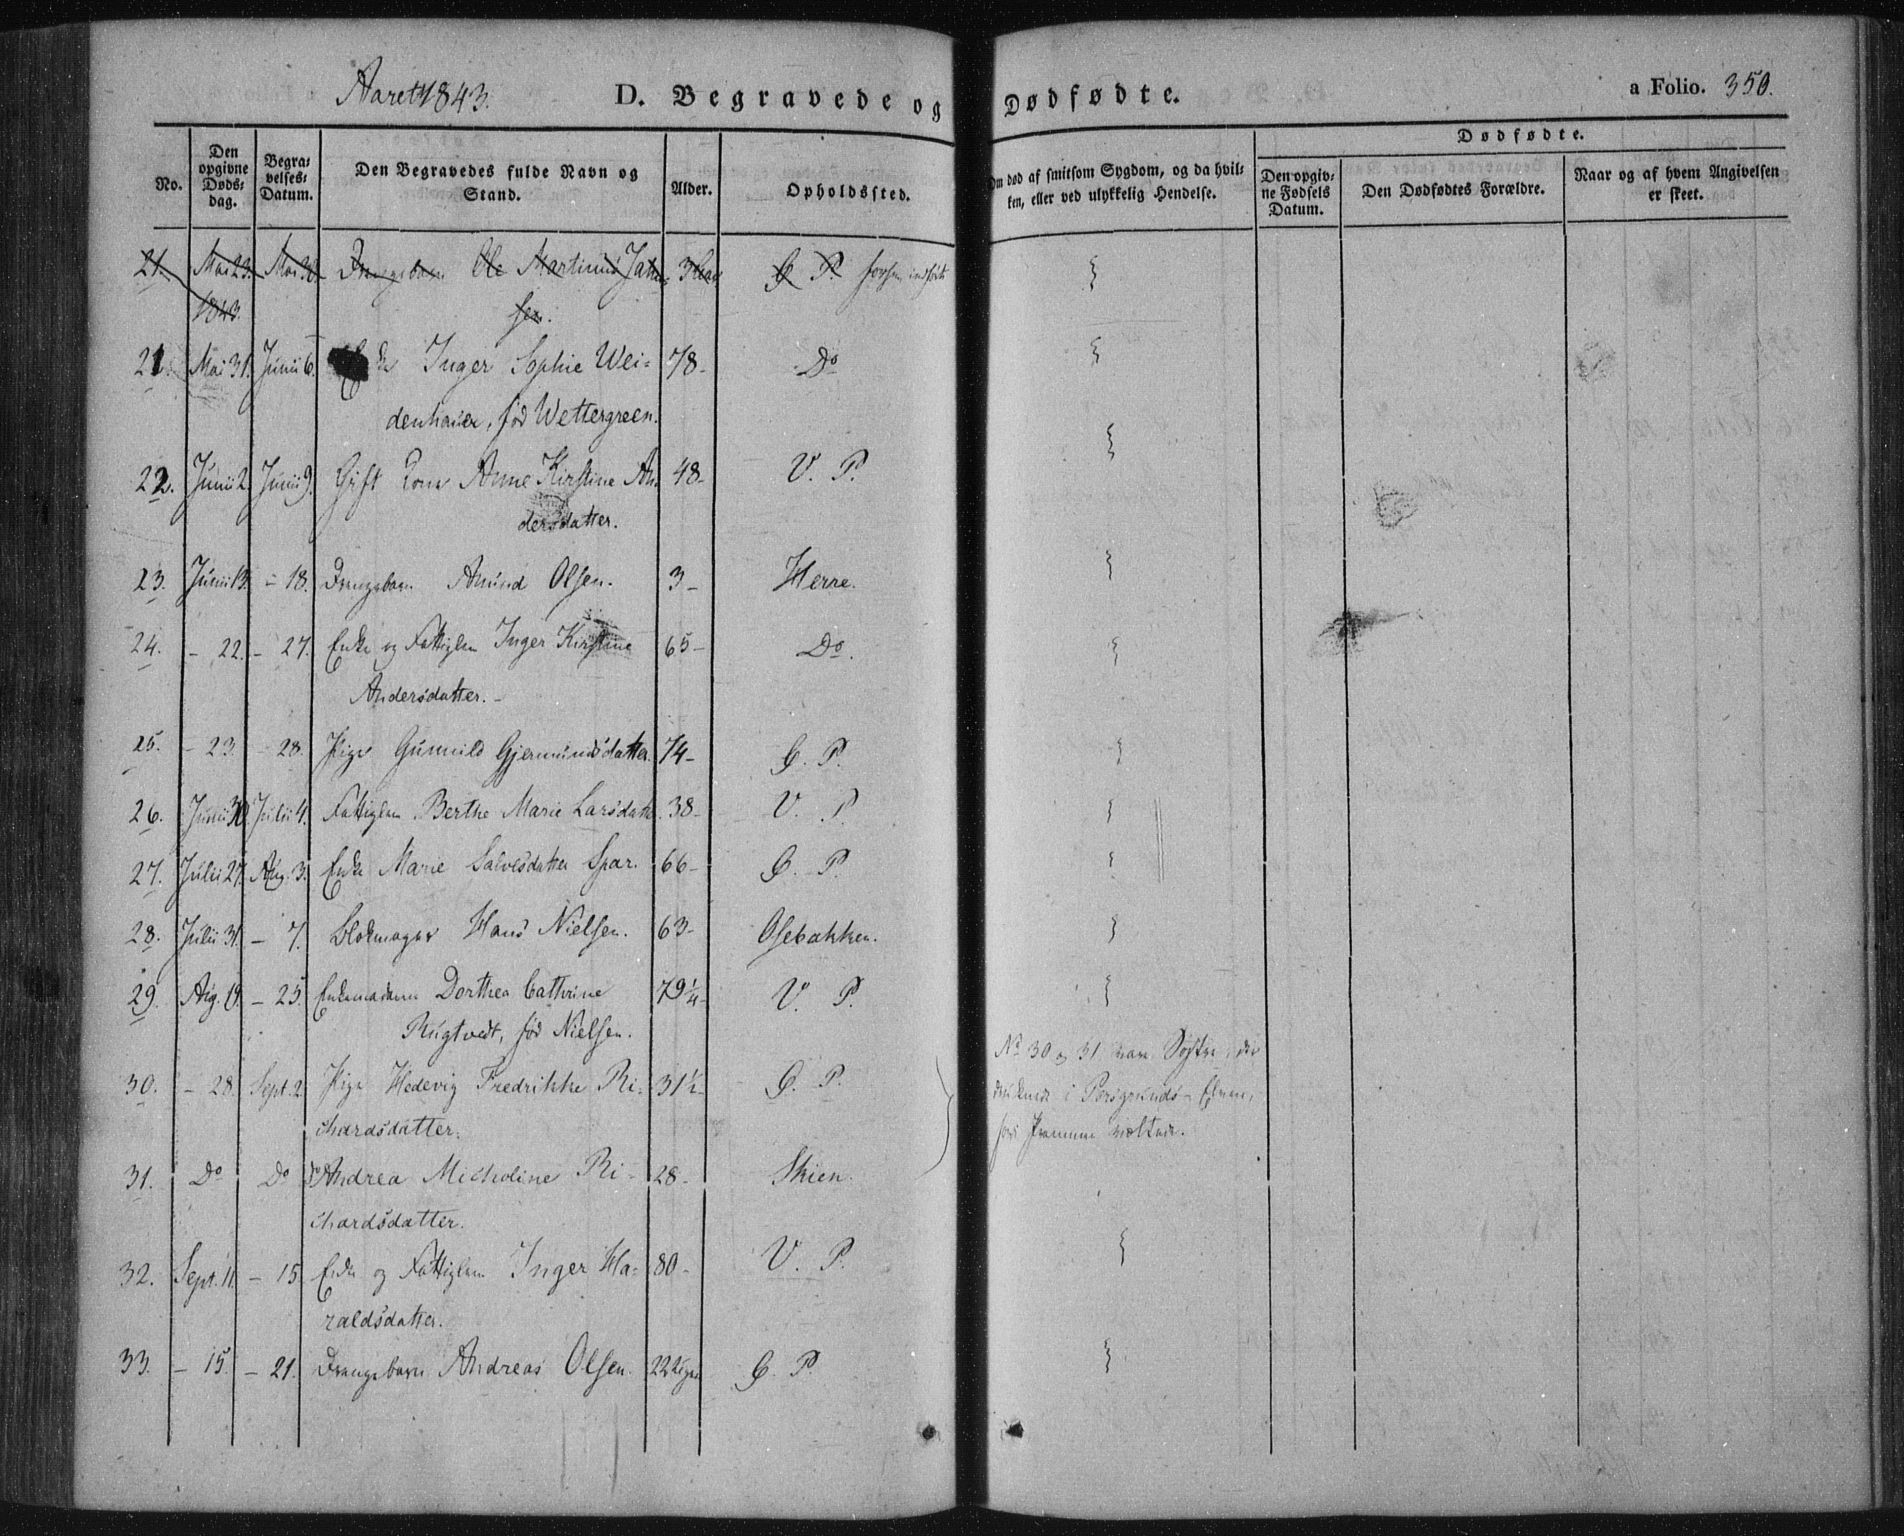 Aaret 1843.
D. Begravede og Dødfødte.
a Folio. 350.
No.
Den opgivne Døds-dag.
Begra-velses-Datum.
Den Begravedes fulde Navn og Stand.
Alder.
Opholdssted.
Om død af smitsom Sygdom, og da hvil-ken, eller ved ulykkelig Hendelse.
Dødfødte.
Den opgiv-ne Fødsels Datum.
Den Dødfødtes Forældre.
Naar og af hvem Angivelsen er skeet.
21. Mai 23. Mai 30. Drengebarn Ole Martinus
1843.
21. Mai 31. Junii 6. Inger Sophie Wei- 78- Do
denhauer, fød Wettergreen.
22. Junii 2. Junii 9. Gift Kone Anne Kirstine An- 48- V. P.
dersdatter.
23. Junii 13. - 18. Drengebarn Amund Olsen. 3- Herre.
24. - 22. - 27. Enke og Fattiglem Inger Kirstine 65- Do.
Andersdatter.-
25. - 23. - 28. Pige Gunnild Gjermundsdatter. 74- G. P.
26. Junii 30. Julii 4. Fattiglem Berthe Marie Larsdatt. 38- V. P.
27. Julii 27. Aug. 3. Enke Marie Salvesdatter Spar. 66- G. P.
28. Julii 31. - 7. Blokmager Hans Nielsen. 63- Osebakken.
29. Aug. 19. - 25. Enkemadame Dorthea Cathrine 79 1/4- V. P.
Rugtvedt, fød Nielsen.
30. - 28. Sept. 2. Pige Hedevig Fredrikke Ri- 31 1/2- G. P.
chardsdatter.
No 30 og 31 vare Søstre, der
druknede i Porsgrunds-Elven,
31. Do Do Do Andrea Micholine Ri- 28- Skien.
chardsdatter.
32. Sept. 11. - 15 Enke og Fattiglem Inger Ha- 80- V. P.
raldsdatter.
33. - 15. - 21. Drengebarn Andreas Olsen. 22 Uger G P.